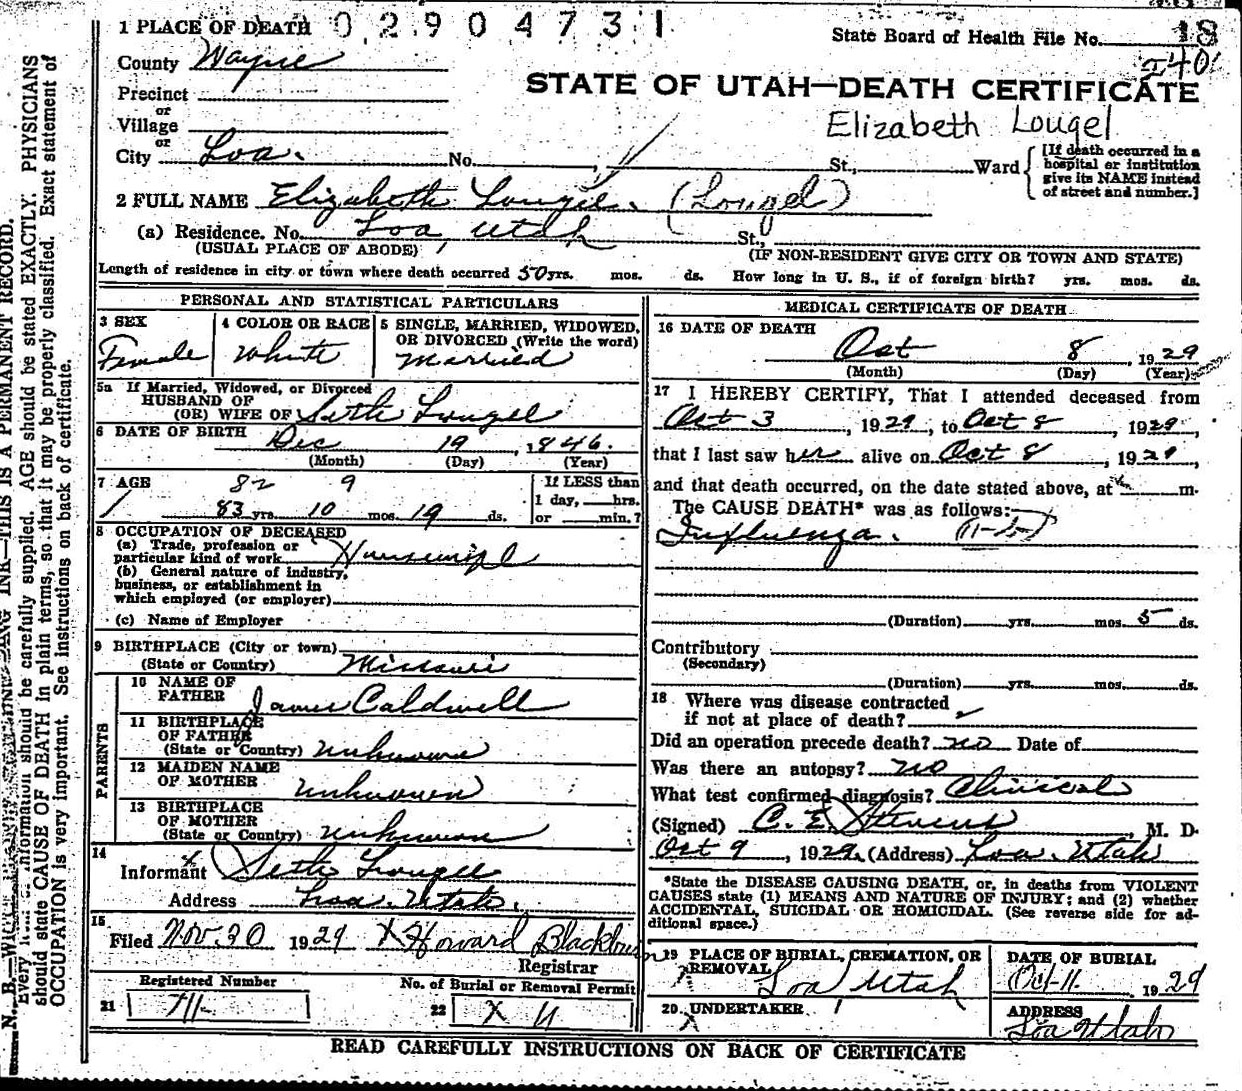 1 PLACE OF DEATH 02904731
State Board of Health File No. 18
240
County Wayne
STATE OF UTAH—DEATH CERTIFICATE
Precinct
or
Village
Elizabeth Lougel
or
City Loa. No. St., Ward
[If death occurred in a hospital or institution give its NAME instead of street and number.]
2 FULL NAME Elizabeth (Lougel)
(a) Residence. No. Loa Utah St.,
(USUAL PLACE OF ABODE) (IF NON-RESIDENT GIVE CITY OR TOWN AND STATE)
Length of residence in city or town where death occurred 50 yrs. mos. ds. How long in U. S., if of foreign birth? yrs. mos. ds.
PERSONAL AND STATISTICAL PARTICULARS
3 SEX
Female
4 COLOR OR RACE
White
5 SINGLE, MARRIED, WIDOWED, OR DIVORCED (Write the word)
Married
5a If Married, Widowed, or Divorced
HUSBAND OF
(OR) WIFE OF Seth Lougel
6 DATE OF BIRTH Dec 19, 1846.
(Month) (Day) (Year)
7 AGE 82 9
83 yrs. 10 mos. 19 ds.
If LESS than
1 day, hrs.
or min.?
8 OCCUPATION OF DECEASED
(a) Trade, profession or
particular kind of work Housewife
(b) General nature of industry,
business, or establishment in
which employed (or employer)
(c) Name of Employer
9 BIRTHPLACE (City or town)
(State or Country) Missouri
PARENTS
10 NAME OF
FATHER James Caldwell
11 BIRTHPLACE
OF FATHER
(State or Country) Unknown
12 MAIDEN NAME
OF MOTHER Unknown
13 BIRTHPLACE
OF MOTHER
(State or Country) Unknown
14
Informant Seth Lougel
Address Loa Utah.
15
Filed Nov. 30 1929 X Howard Blackburn
Registrar
Registered Number
21 711-
No. of Burial or Removal Permit
22 X 4
MEDICAL CERTIFICATE OF DEATH
16 DATE OF DEATH
Oct 8, 1929
(Month) (Day) (Year)
17 I HEREBY CERTIFY, That I attended deceased from
Oct 3, 1929, to Oct 8, 1929,
that I last saw her alive on Oct 8, 1929,
and that death occurred, on the date stated above, at m.
The CAUSE DEATH* was as follows:
Influenza.
(Duration) yrs. mos. 5 ds.
Contributory
(Secondary)
(Duration) yrs. mos. ds.
18 Where was disease contracted
if not at place of death?
Did an operation precede death? no Date of
Was there an autopsy? no
What test confirmed diagnosis? Clinical
(Signed) C. E. Stevens, M. D.
Oct 9, 1929. (Address) Loa. Utah
*State the DISEASE CAUSING DEATH, or, in deaths from VIOLENT
CAUSES state (1) MEANS AND NATURE OF INJURY; and (2) whether
ACCIDENTAL, SUICIDAL OR HOMICIDAL. (See reverse side for ad-
ditional space.)
19 PLACE OF BURIAL, CREMATION, OR
REMOVAL Loa Utah
DATE OF BURIAL
Oct-11. 1929
20 UNDERTAKER
X
ADDRESS
Loa Utah
READ CAREFULLY INSTRUCTIONS ON BACK OF CERTIFICATE
INK—THIS IS A PERMANENT RECORD.
information should be carefully supplied. AGE should be stated EXACTLY. PHYSICIANS
should state CAUSE OF DEATH in plain terms, so that it may be properly classified. Exact statement of
OCCUPATION is very important. See instructions on back of certificate.